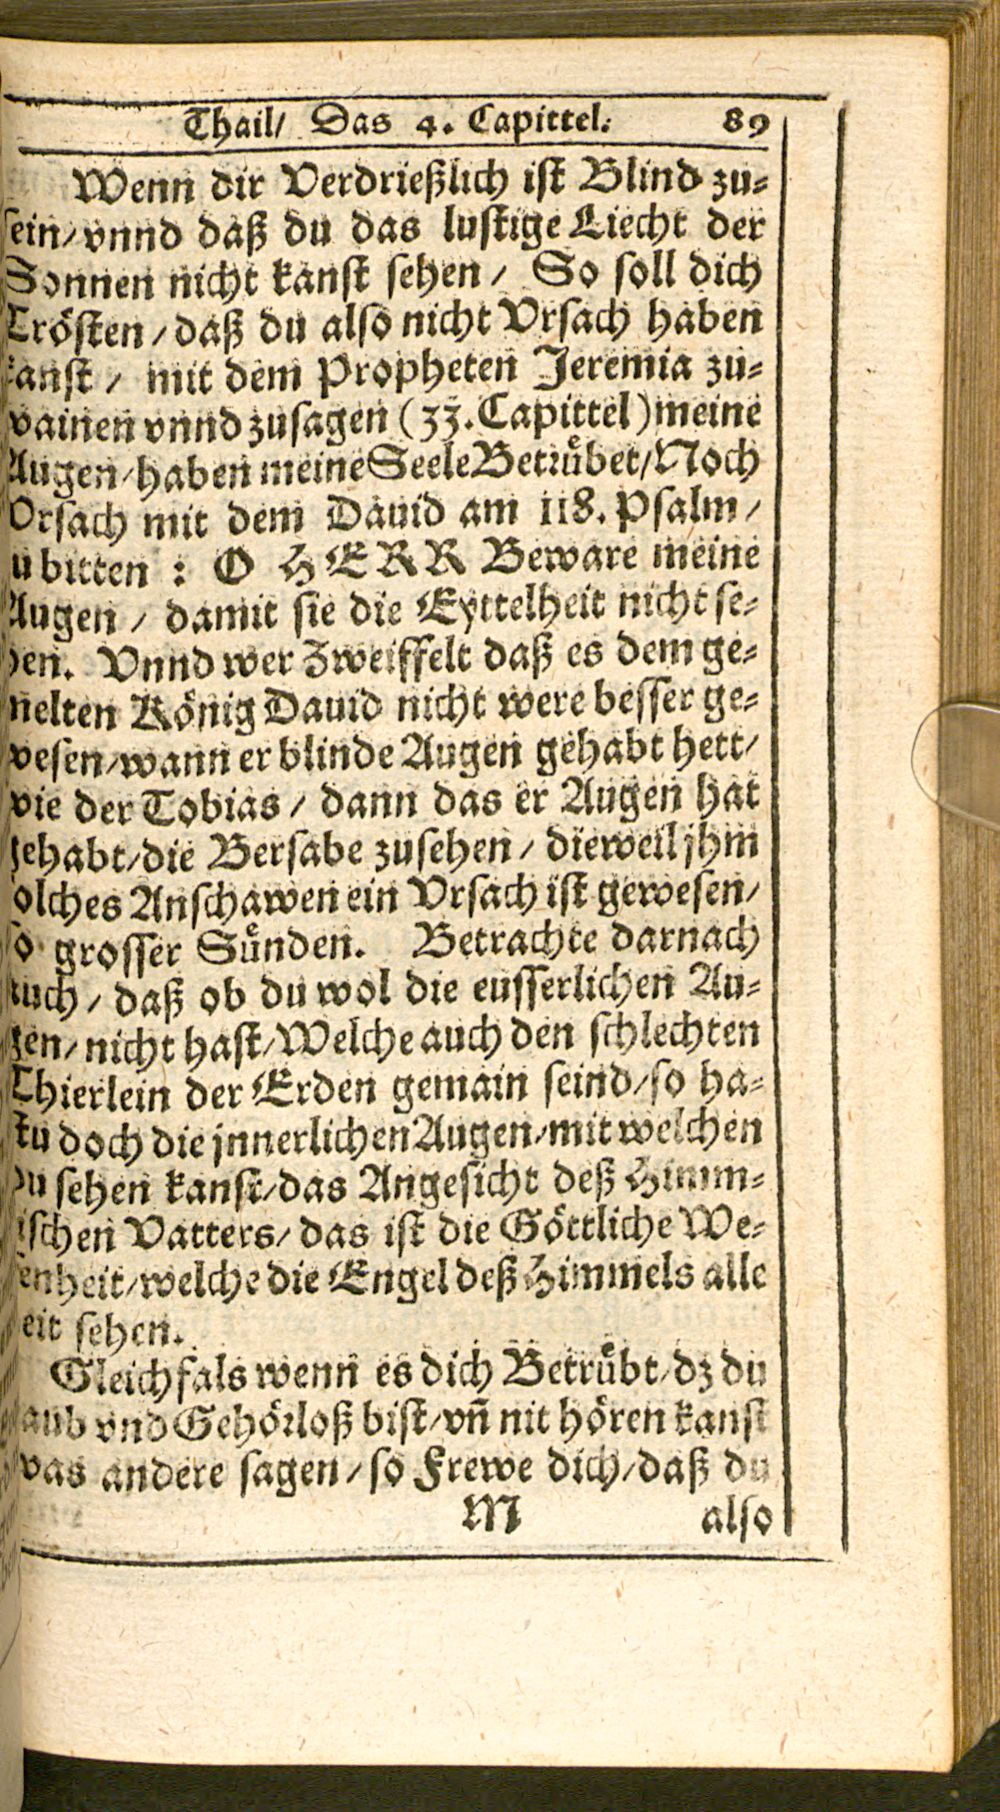 Thail/ Das 4. Capittel. 89
Wenn dir Verdrießlich ist Blind zu-
sein/vnnd daß du das lustige Liecht der
Sonnen nicht kanst sehen / So soll dich
Trösten / daß du also nicht Vrsach haben
kanst / mit dem Propheten Jeremia zu-
wainen vnnd zusagen (33. Capittel) meine
Augen/haben meine Seele Betrübet/Noch
Vrsach mit dem Dauid am 118. Psalm /
u bitten : O HERR Beware meine
Augen / damit sie die Eyttelheit nicht se-
hen. Vnnd wer Zweiffelt daß es dem ge-
melten König Dauid nicht were besser ge-
wesen/wann er blinde Augen gehabt hett/
wie der Tobias / dann das er Augen hat
gehabt/die Bersabe zusehen / dieweil jhm
olches Anschawen ein Vrsach ist gewesen/
so grosser Sünden. Betrachte darnach
auch / daß ob du wol die eusserlichen Au-
gen/nicht hast/Welche auch den schlechten
Thierlein der Erden gemain seind/so ha-
stu doch die jnnerlichen Augen/mit welchen
du sehen kanst/das Angesicht deß Himm-
ischen Vatters/das ist die Göttliche We-
senheit/welche die Engel deß Himmels alle
eit sehen.
Gleichfals wenn es dich Betrübt/dz du
aub vnd Gehörloß bist/vñ nit hören kanst
was andere sagen / so Frewe dich/daß du
M also